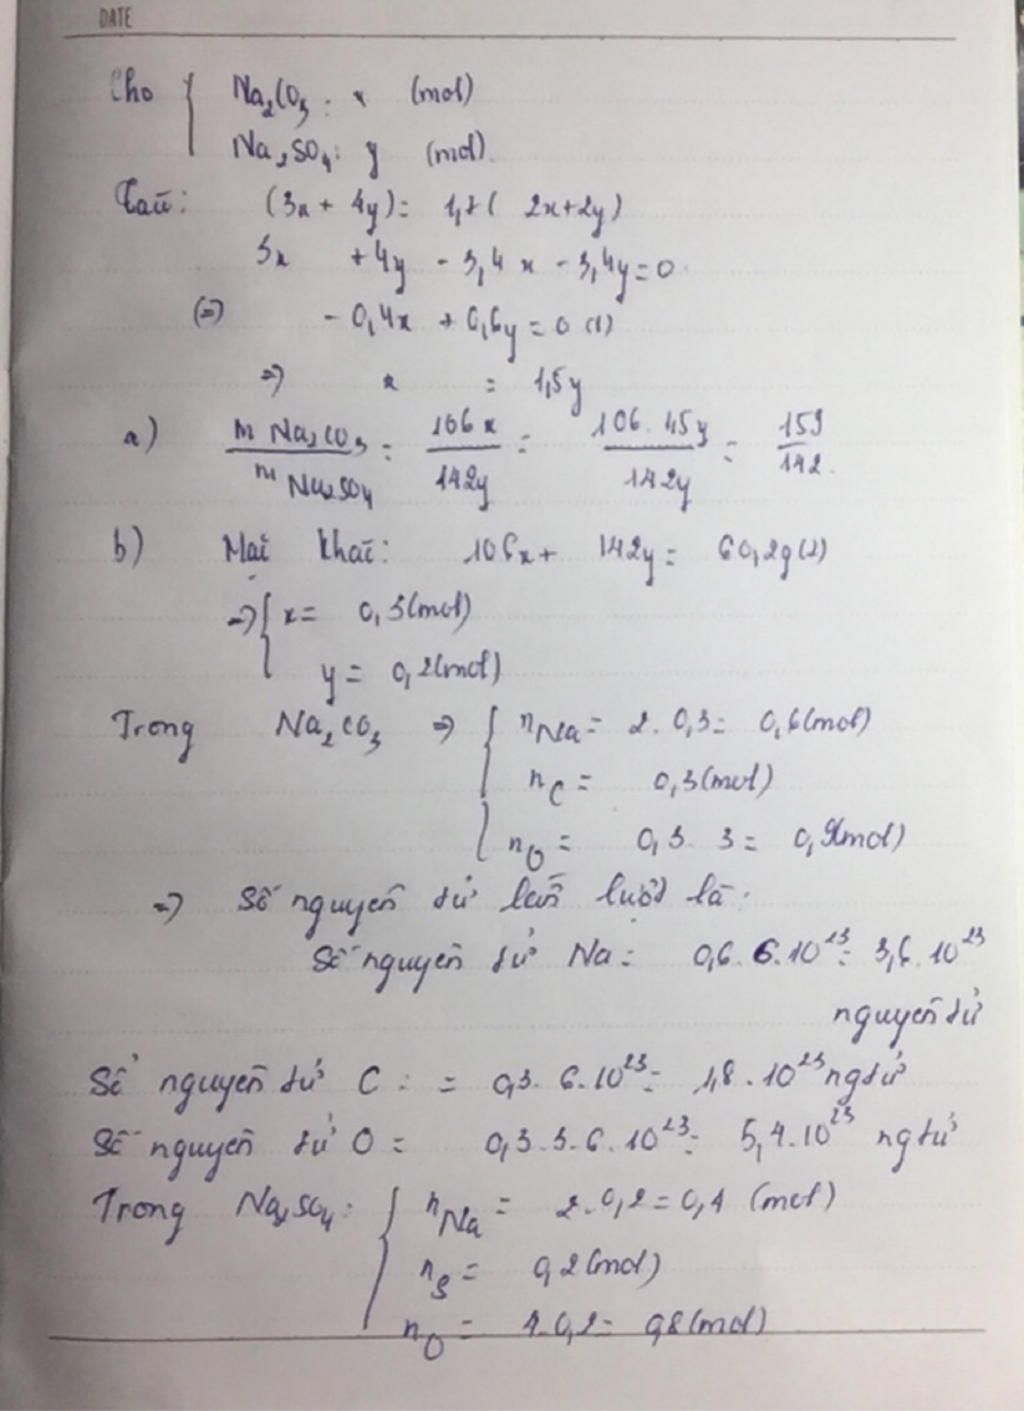 DATE
Cho { Na₂CO₃ : x (mol)
Na₂SO₄ : y (mol)
Ta có: (3x + 4y) = 1,7 ( 2x+2y)
3x + 4y - 3,4 x - 3,4y = 0
(=) - 0,4x + 0,6y = 0 (1)
=> x = 1,5y
a) m Na₂CO₃ / m Na₂SO₄ = 106 x / 142y = 106. 1,5y / 142y = 159 / 142.
b) Mặt khác: 106x + 142y = 60,2g (2)
=> { x = 0,3 (mol)
y = 0,2 (mol)
Trong Na₂CO₃ => { nNa = 2. 0,3 = 0,6 (mol)
nC = 0,3 (mol)
nO = 0,3. 3 = 0,9 (mol)
=> Số nguyên tử lần lượt là:
Số nguyên tử Na = 0,6. 6.10²³ = 3,6. 10²³
nguyên tử
Số nguyên tử C : = 0,3. 6.10²³ = 1,8 . 10²³ ngtử
Số nguyên tử O = 0,3.3.6.10²³ = 5,4.10²³ ngtử
Trong Na₂SO₄ : { nNa = 2.0,2 = 0,4 (mol)
nS = 0,2 (mol)
nO = 4.0,2 = 0,8 (mol)